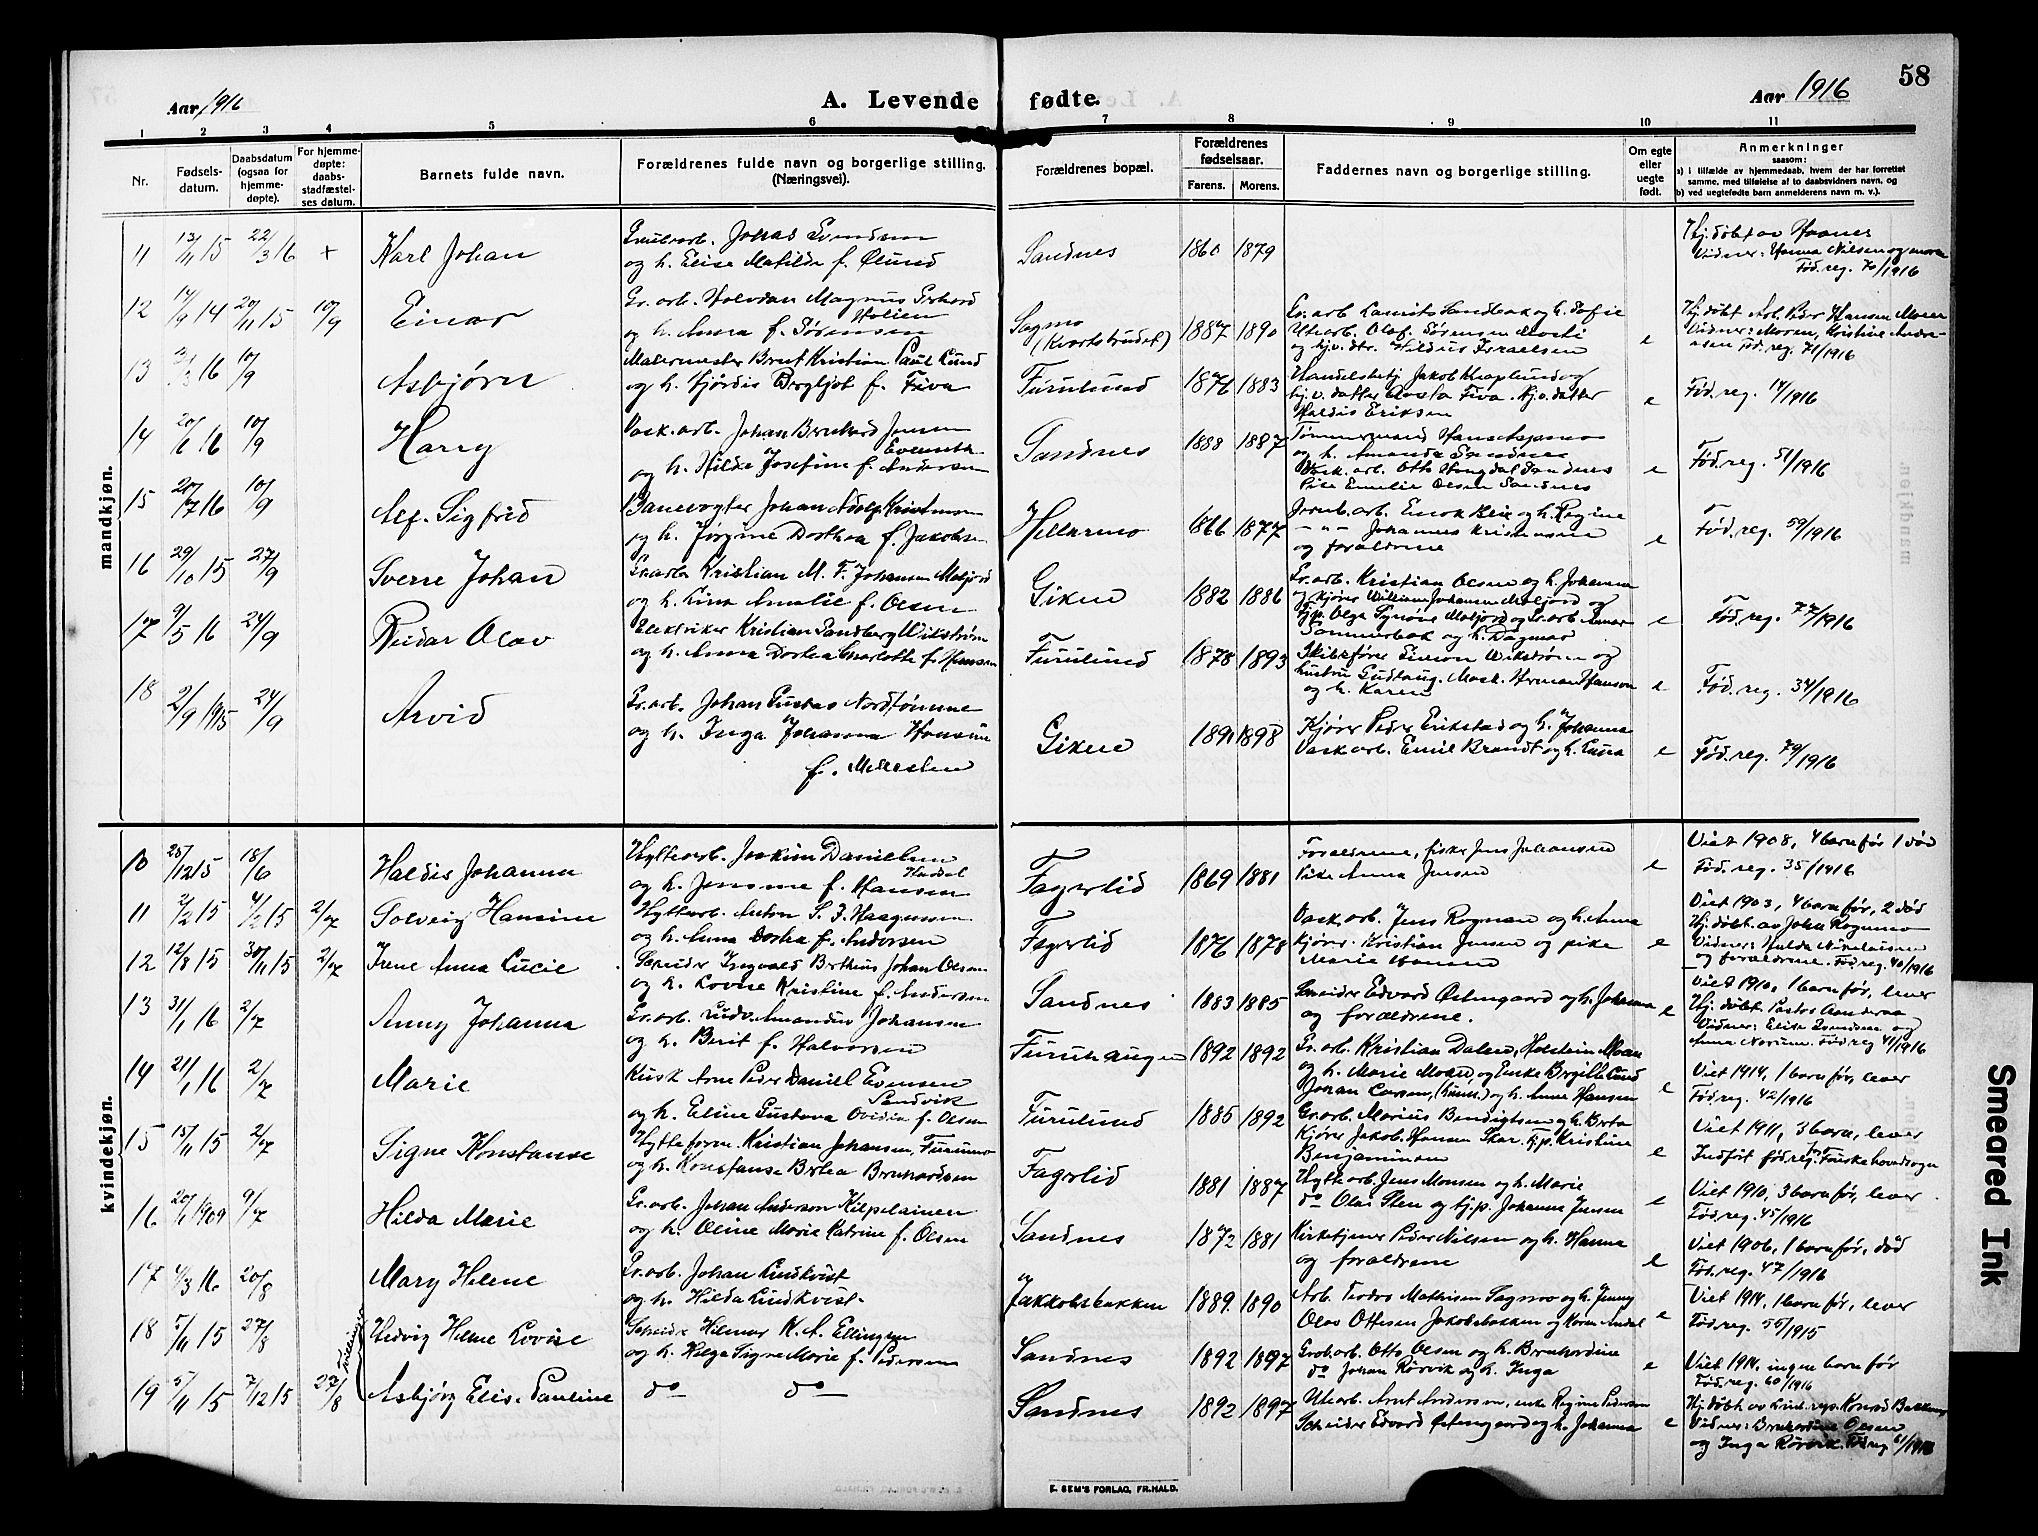 Aar 1916
A. Levende fødte.
Aar 1916
58
1 2 3 4 5 6 7 8 9 10 11
Nr.
Fødsels-
datum.
Daabsdatum
(ogsaa for
hjemme-
døpte).
For hjemme-
døpte:
daabs-
stadfæstel-
ses datum.
Barnets fulde navn.
Forældrenes fulde navn og borgerlige stilling.
(Næringsvei).
Forældrenes bopæl.
Forældrenes
fødselsaar.
Farens. Morens.
Faddernes navn og borgerlige stilling.
Om egte
eller
uegte
født.
Anmerkninger
saasom:
a) i tilfælde av hjemmedaab, hvem der har forrettet
samme, med tilføielse af to daabsvidners navn, og
b) ved uegtefødte barn anmelderens navn m. v.).
mandkjøn.
11 13/11 15 22/3 16 + Karl Johan
og h. Elise Matilde f. Ølund
Sandnes 1860 1879
Hj.døbt av
Vidner: Hanna Nilsen og moren
Fød.reg. 70/1916
12 14/9 14 20/11 15 10/9 Einar
Gr.arb. Halvdan Magnus
og h. Anna f. Sørensen
Sagmo 1887 1890
Gr.arb Laurits Sandbak og h. Sofie
Utearb. Olaf Sørensen
og hj.v. dtr. Hildus Israelsen
e
Vidner: Moren, Kristine
Fød.reg. 71/1916
13 16 10/9 Asbjørn
Malermester Bernt Kristian Paul Lund
og h. Hjørdis Bergljot f. Fiva
Furulund 1876 1883
hj.v. datter Fiva. Hj.v. datter
Haldis Eriksen
e Fød.reg. 14/1916
14 20/6 16 10/9 Harry
Vask.arb. Johan Bernhard Jensen
og h. Hilda Josefine f. Andersen
Sandnes 1888 1887
og h. Amanda Sandnes
Vask.arb. Otto Sandnes
Pike Emilie Olsen Sandnes
e Fød.reg. 51/1916
15 20/7 16 10/9 Alf Sigfrid
Banevogter Johan Adolf Kristensen
og h. Jørgine Dorthea f. Jakobsen
Hellarmo 1866 1877
Jernb.arb. Enok og h. Regine
-"- Johannes Kristensen
og forældrene
e Fød.reg. 59/1916
16 29/10 15 27/9 Sverre Johan
Gr.arb Kristian M. F. Johansen Moljord
og h. Lina Amalie f. Olsen
Giken 1882 1886
Gr.arb. Kristian Olsen og h. Johanna
og kjører William Johansen Moljord og
hj.p. Olga Synøve Moljord og Gr.arb Einar
Sommerbak og h. Dagmar
e Fød.reg. 77/1916
17 9/5 16 24/9 Reidar Olav
Elektriker Kristian Sandberg Wikstrøm
og h. Anna Dorthea Charlotte f. Hansen
Furulund 1878 1893
Skibsfører Simon Wikstrøm og
hustru Gudlaug. Mask. Herman Hanson
og h. Karen
e Fød.reg. 34/1916
18 2/9 1915 24/9 Arvid
Gr.arb. Johan Gustav Nordtømme
og h. Inga Johanna Hansine
f.
Giken 1891 1898
Kjører Peder Erikstad og h. Johanna
Vaskarb. Emil Brandt og h. Luisa
e Fød.reg. 79/1916
kvindekjøn.
10 25/12 15 18/6 Haldis Johanna
Hyttearb. Joakim Danielsen
og h. Jensine f. Hansen
Fagerlid 1869 1881
Forældrene, fisker Jens Johansen
Pike Anna Jensen
e
Viet 1908, 4 barn før 1 død
Fød.reg. 35/1916
11 2/2 15 4/2 15 2/7 Solveig Hansine
Hyttearb. Anton S. J. Haagensen
og h. Anna Dorthea f. Andersen
Fagerlid 1876 1878
Vaskarb. Jens Rognan og h. Anna
Kjører Kristian Jensen og pike
Marie Hansen
e
Viet 1903, 4 barn før, 2 død
Hj.døbt av John Rognmo
Vidner: Hulda Nikolaisen
og forældrene. Fød.reg. 40/1916
12 12/8 15 30/11 15 2/7 Irene Anna Lucie
Skeider Ingvald Berthins Johan Olsen
og h. Lovise Kristine f. Andersen
Sandnes 1883 1885
Skeider Edvard Østengaard og h. Johanna
og forældrene.
e
Viet 1910, 1 barn før, lever
Hj.døbt Pastor
Vidner: Elise Svendsen og
Anna Norum. Fød reg 41/1916
13 31/1 16 2/7 Anny Johanna
Gr.arb. Ludv. Amandus Johansen
og h. Berit f. Halvorsen
Furuhaugen 1892 1892
Gr.arb. Kristian Dalen, Halstein Moan
og h. Marie Moan, og Enke Birgitte Lund
Johan Larsen, og h. Anna Hansen
e
Viet 1914, 1 barn før, lever
Fød.reg. 42/1916
14 21/1 16 2/7 Marie
Kusk Arne Peder Daniel Evensen
Sandvik
og h. Eline Gustava Ovidia f. Olsen
Furulund 1885 1892
Gr.arb. Marius Bendigtsen og h. Berta
Kjører Jakob Hansen hj.p. Kristine
Benjaminsen
e
Viet 1911, 3 barn, lever
Indført fød.reg. Fauske hovedsogn
15 15/11 15 2/7 Signe Konstanse
Hytteform. Kristian Johansen, Furumo
og h. Konstanse Berthea Bernhardsen
Fagerlid 1881 1887
Hyttearb. Jens Monsen og h. Marie
do Olai Sten og hj.p. Johanna Jensen
e
Viet 1910, 3 barn før, lever
Fød.reg. 45/1916
16 20/1 1909 9/7 Hilda Marie
Gr.arb. Johan Anderson Kilpelainen
og h. Oline Marie Katrine f. Olsen
Sandnes 1872 1881
Kirketjener Peder Nilsen og h. Hanna
og forældrene
e
Viet 1906, 1 barn før, død
Fød.reg. 47/1916
17 4/3 16 20/8 Mary Helene
Gr.arb. Johan Lindkvist
og h. Hilda Lindkvist
Jakkobsbakken 1889 1890
Arb. Teodor Mathisen Sagmo og h. Jenny
Olav Ottesen Jakobsbakken og Karen
e
Viet 1914, 1 barn før, lever
Fød.reg. 55/1915
tvillinger
18 5/11 15 27/8 Hedvig Helene Lovise
Skeider Hilmar K. A. Ellingsen
og h. Helga Signe Marie f. Pedersen
Sandnes 1892 1897
Grubarb. Otto Olsen og h. Bernhardine
do Johan Rørvik og h. Inga
e
Viet 1914, ingen barn før
Fød.reg. 60/1916
19 5/11 15 7/12 15 27/8 Asbjørg Elis. Pauline
do do
Sandnes 1892 1897
Utearb. Arnt Anderson, enke Regine Pedersen
Skeider Edvard Østengaard og h. Johanna
e
Hj.døbt av Konrad
Vidner: Bernhardine Olsen
og Inga Rørvik. Fød.reg 61/1916
E. SEM'S FORLAG, FR.HALD.
Smeared Ink